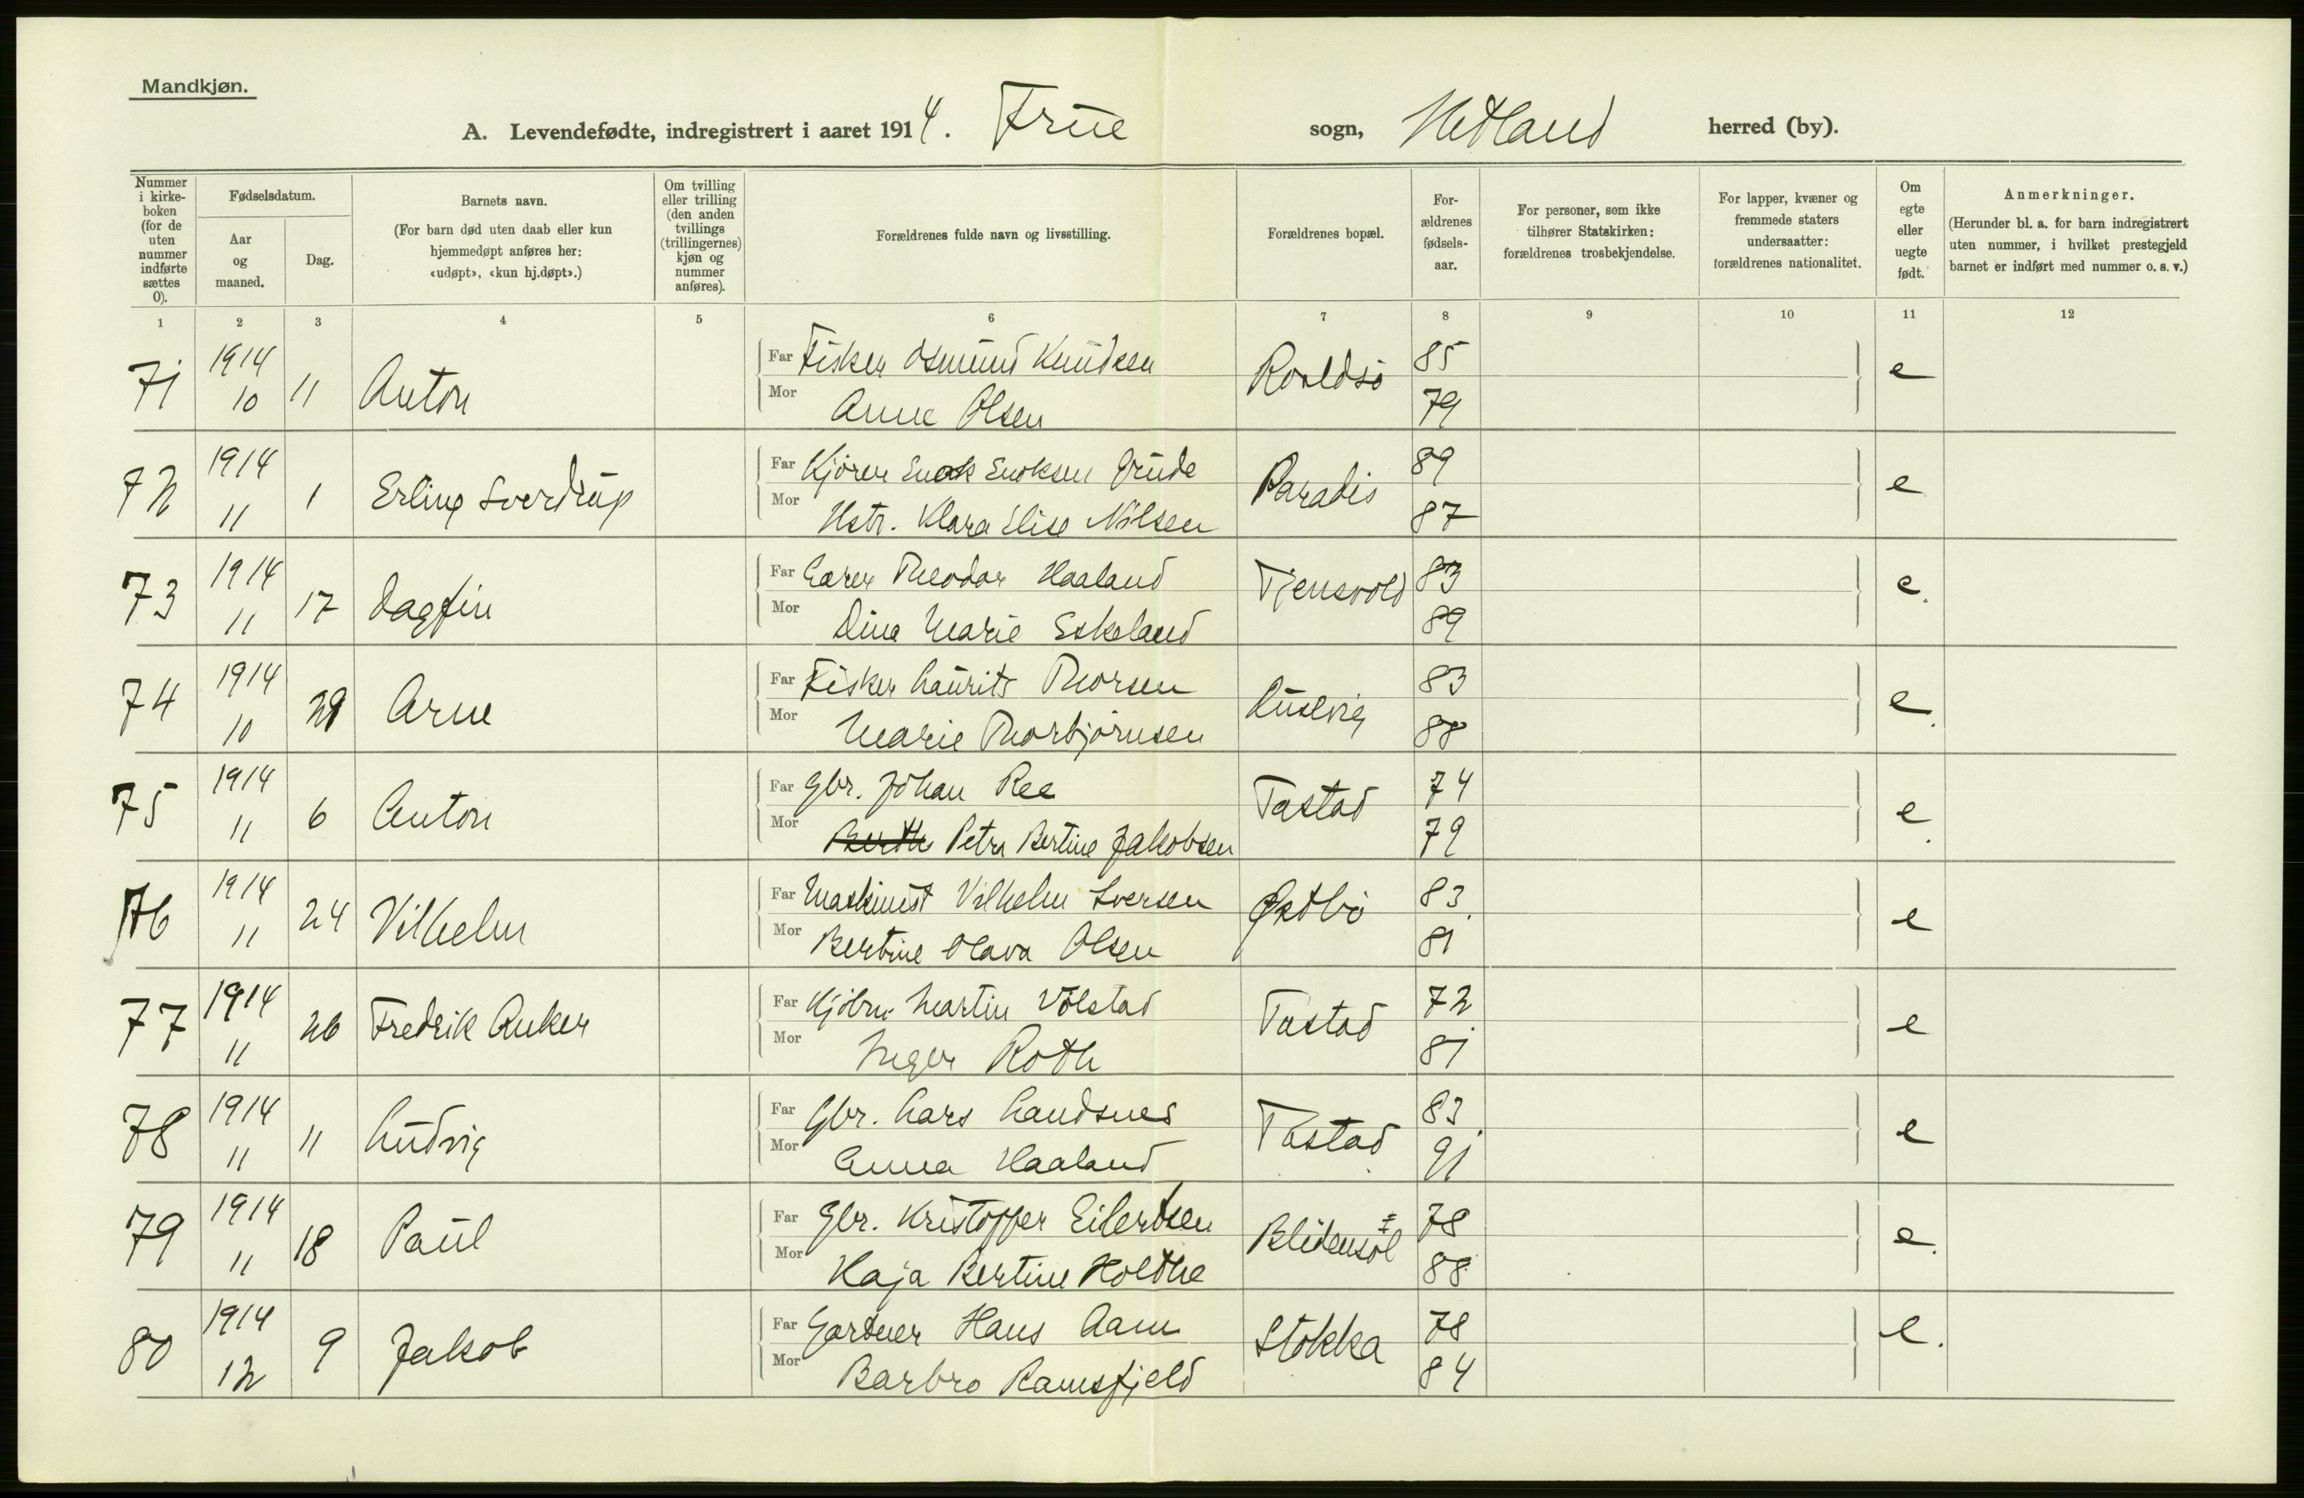 Mandkjøn.
A. Levendefødte, indregistrert i aaret 1914. Frue sogn, Hetland herred (by).
Nummer i kirkeboken (for de uten nummer indførte sættes 0).
Fødselsdatum.
Aar og maaned.
Dag.
Barnets navn.
(For barn død uten daab eller kun hjemmedøpt anføres her: «udøpt», «kun hj.døpt».)
Om tvilling eller trilling (den anden tvillings (trillingernes) kjøn og nummer anføres).
Forældrenes fulde navn og livsstilling.
Forældrenes bopæl.
For-ældrenes fødsels-aar.
For personer, som ikke tilhører Statskirken: forældrenes trosbekjendelse.
For lapper, kvæner og fremmede staters undersaatter: forældrenes nationalitet.
Om egte eller uegte født.
Anmerkninger.
(Herunder bl. a. for barn indregistrert uten nummer, i hvilket prestegjeld barnet er indført med nummer o. s. v.)
1 2 3 4 5 6 7 8 9 10 11 12
71 1914 10 11 Anton Far Fisker Osmund Knudsen Roaldsø 85 e
Mor Anne Olsen 79
72 1914 11 1 Erling Sverdrup Far Kjører Enok Enoksen Grude Paradis 89 e
Mor Hstr. Klara Elise Nilsen 87
73 1914 11 17 Dagfin Far Garver Theodor Haaland Tjensvold 83 e.
Mor Dina Marie Eskeland 89
74 1914 10 29 Arne Far Fisker Laurits Thorsen Dusevig 83 e.
Mor Marie Thorbjørnsen 88
75 1914 11 6 Anton Far Gbr. Johan Ree Tastad 74 e.
Mor Petra Bertine Jakobsen 79
76 1914 11 24 Vilhelm Far Maskinist Vilhelm Iversen Østbø 83 e
Mor Bertine Olava Olsen 81
77 1914 11 26 Fredrik Anker Far Kjøbm. Martin Volstad Tastad 72 e
Mor Inger Roth 81
78 1914 11 11 Ludvig Far Gbr. Lars Landsnes Tastad 83 e
Mor Anna Haaland 91
79 1914 11 18 Paul Far Gbr. Kristoffer Eilertsen Blidensol 78 e.
Mor Kaja Bertine Holthe 88
80 1914 12 9 Jakob Far Gartner Hans Aam Stokka 78 e.
Mor Barbro Ramsfjeld 84